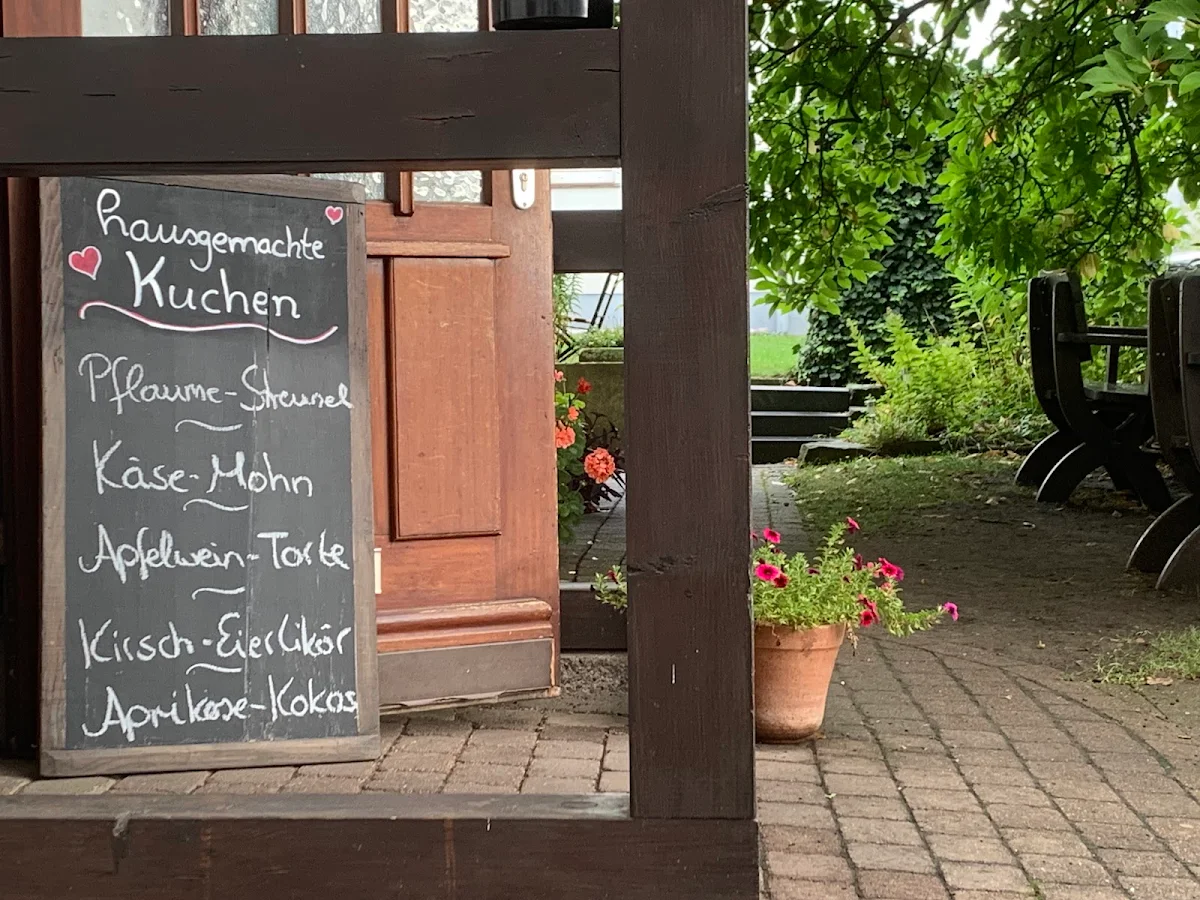 hausgemachte
Kuchen
Pflaume-Streusel
Käse-Mohn
Apfelwein-Torte
Kirsch-Eierlikör
Aprikose-Kokos